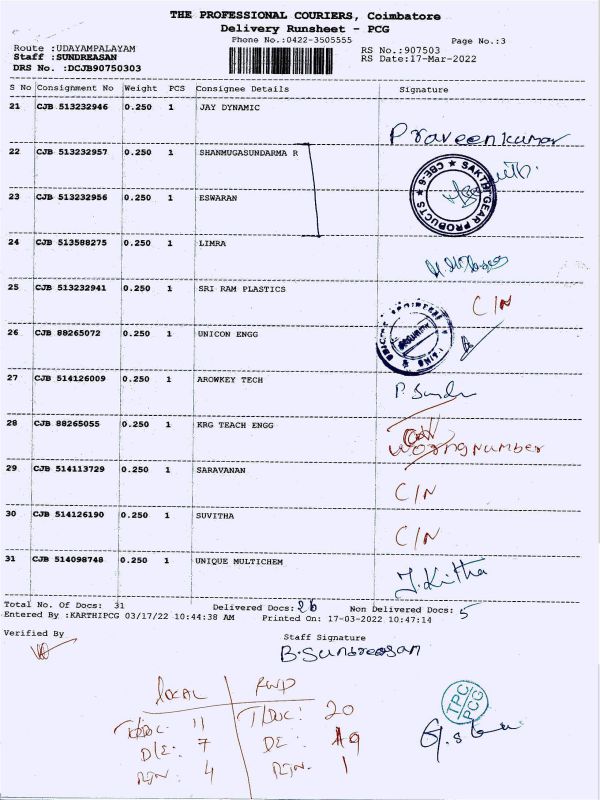 THE PROFESSIONAL COURIERS, Coimbatore
Delivery Runsheet - PCG
Phone No.:0422-3505555
Page No.:3
Route :UDAYAMPALAYAM
RS No.:907503
Staff :SUNDREASAN
RS Date:17-Mar-2022
DRS No. :DCJB90750303
S No Consignment No Weight PCS Consignee Details Signature
21 CJB 513232946 0.250 1 JAY DYNAMIC
Praveenkumar
22 CJB 513232957 0.250 1 SHANMUGASUNDARMA R
SAKTHI GEAR PRODUCTS ★ CBE-6 ★
23 CJB 513232956 0.250 1 ESWARAN
24 CJB 513588275 0.250 1 LIMRA
25 CJB 513232941 0.250 1 SRI RAM PLASTICS
C/N
26 CJB 88265072 0.250 1 UNICON ENGG
SECURITY
27 CJB 514126009 0.250 1 AROWKEY TECH
P. Sundr
28 CJB 88265055 0.250 1 KRG TEACH ENGG
Worng Number
29 CJB 514113729 0.250 1 SARAVANAN
C/N
30 CJB 514126190 0.250 1 SUVITHA
C/N
31 CJB 514098748 0.250 1 UNIQUE MULTICHEM
J. Kiitha
Total No. Of Docs: 31 Delivered Docs: 26 Non Delivered Docs: 5
Entered By :KARTHIPCG 03/17/22 10:44:38 AM Printed On: 17-03-2022 10:47:14
Verified By
Staff Signature
B. Sundreasan
LOCAL
T/Doc: 11
D/E: 7
RTN: 4
T/Doc: 20
DE: 19
RTN: 1
TPC
PCG